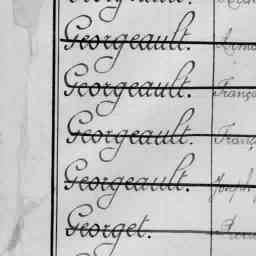 Georgeault.
Georgeault.
Georgeault. Franç
Georgeault. Franç
Georgeault. Joseph
Georget.